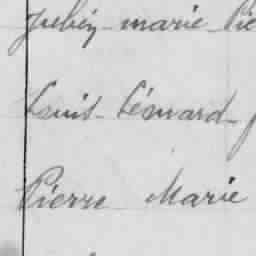 marie
Louis Léonard
Pierre Marie